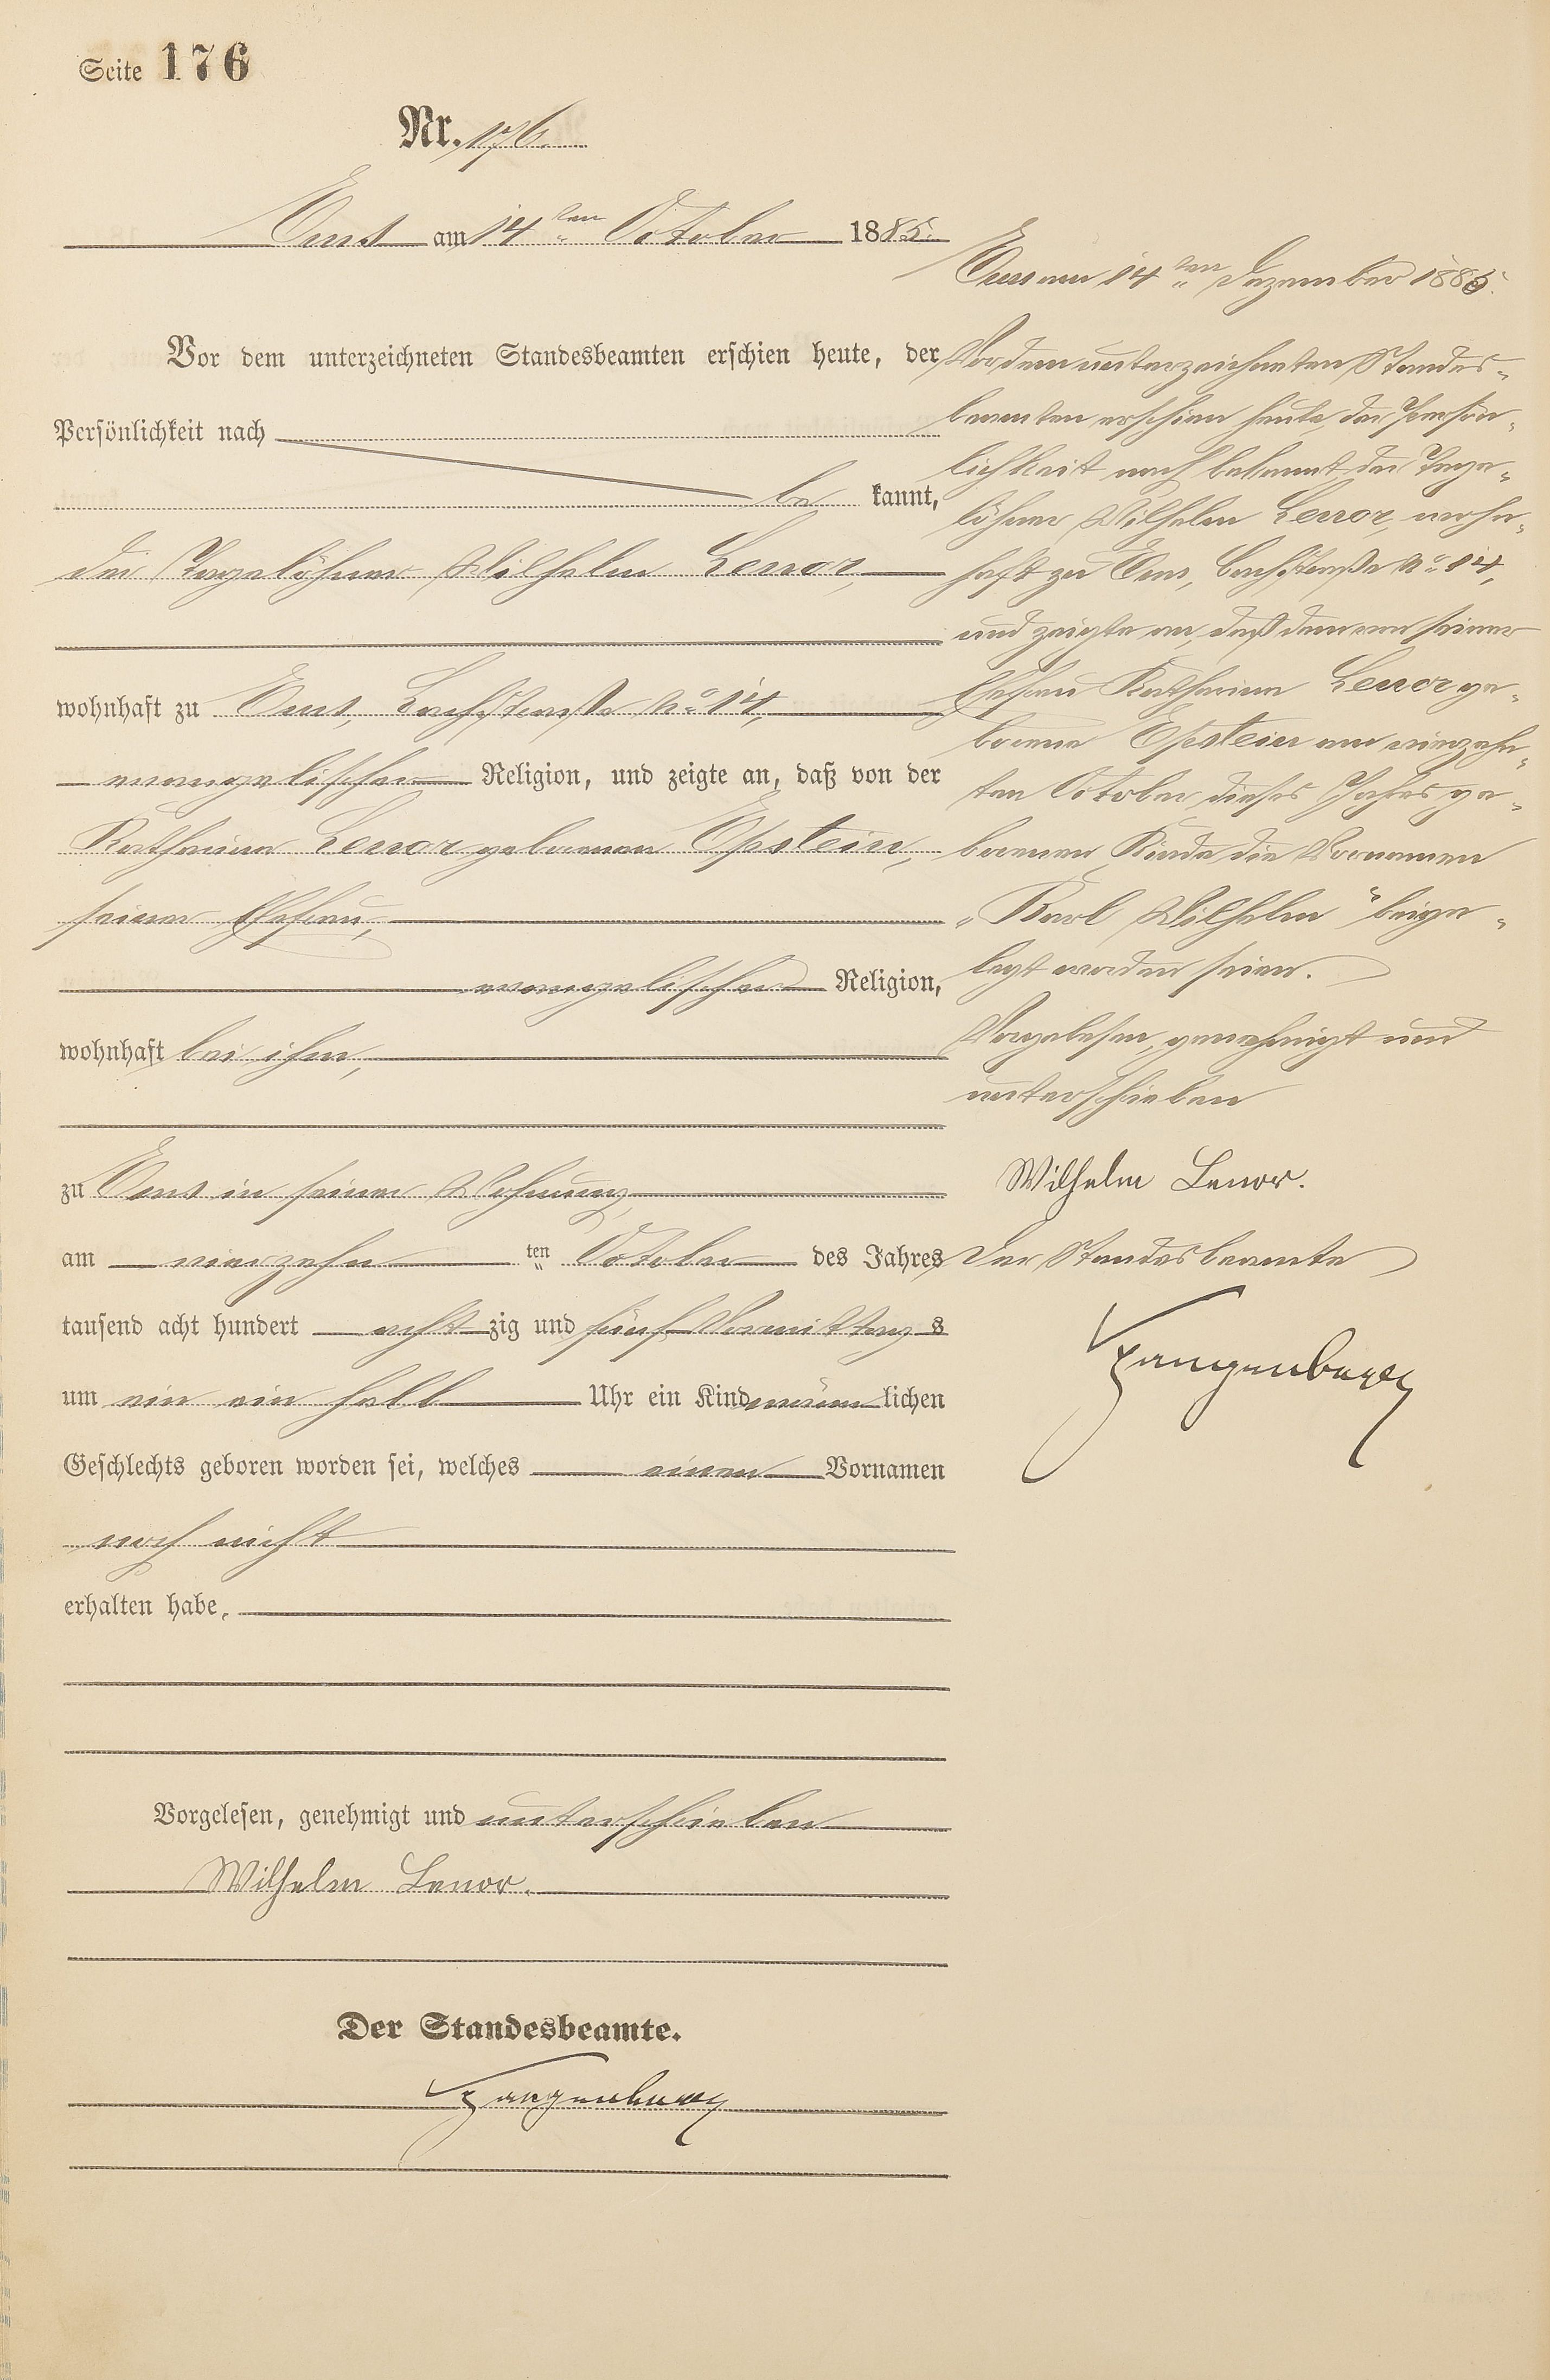 Seite 176
Nr. 176.
Ems am 14ten October 1885.
Vor dem unterzeichneten Standesbeamten erschien heute, der
Persönlichkeit nach
bekannt,
der Tagelöhner Wilhelm Lenor,
wohnhaft zu Ems, Bachstraße No 14,
evangelischer Religion, und zeigte an, daß von der
Katharina Lenor geborenen Epstein,
seiner Ehefrau,
evangelischer Religion,
wohnhaft bei ihm,
zu Ems in seiner Wohnung,
am vierzehnten October des Jahres
tausend acht hundert achtzig und fünf Vormittags
um ein ein halb Uhr ein Kind männlichen
Geschlechts geboren worden sei, welches einen Vornamen
noch nicht
erhalten habe.
Vorgelesen, genehmigt und unterschrieben
Wilhelm Lenor.
Der Standesbeamte.
Ems am 14ten Dezember 1885.
Vor dem unterzeichneten Standes-
beamten erschien heute, der Persön-
lichkeit nach bekannt, der Tage-
löhner Wilhelm Lenor, wohn-
haft zu Ems, Bachstraße No 14,
und zeigte an, daß dem von seiner
Ehefrau Katharina Lenor ge-
borene Epstein am vierzehn-
ten October dieses Jahres ge-
borenen Kinde die Vornamen
"Karl Wilhelm" beige-
legt worden seien.
Vorgelesen, genehmigt und
unterschrieben
Wilhelm Lenor.
Der Standesbeamte